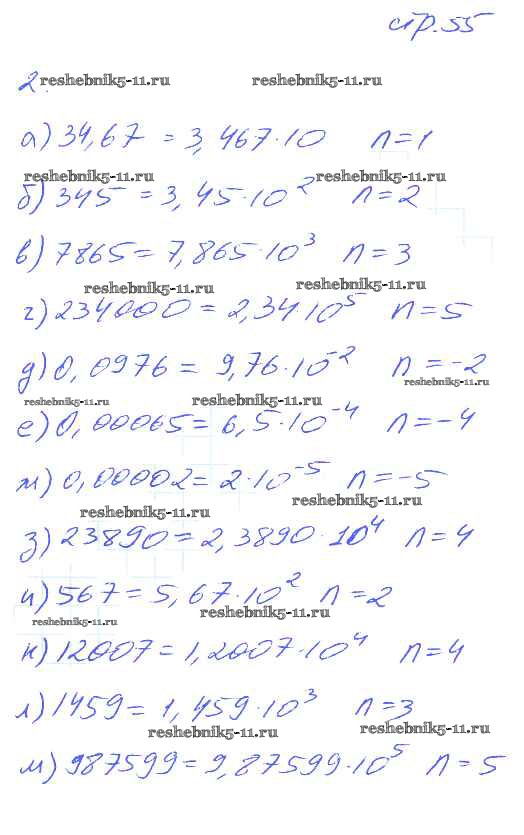 стр. 55
2. reshebnik5-11.ru reshebnik5-11.ru
а) 34,67 = 3,467·10 n=1
reshebnik5-11.ru reshebnik5-11.ru
б) 345 = 3,45·10² n=2
в) 7865 = 7,865·10³ n=3
reshebnik5-11.ru reshebnik5-11.ru
г) 234000 = 2,34·10⁵ n=5
д) 0,0976 = 9,76·10⁻² n=-2
reshebnik5-11.ru
reshebnik5-11.ru reshebnik5-11.ru
е) 0,00065 = 6,5·10⁻⁴ n=-4
ж) 0,00002 = 2·10⁻⁵ n=-5
reshebnik5-11.ru
reshebnik5-11.ru
з) 23890 = 2,3890·10⁴ n=4
и) 567 = 5,67·10² n=2
reshebnik5-11.ru
reshebnik5-11.ru
к) 12007 = 1,2007·10⁴ n=4
л) 1459 = 1,459·10³ n=3
reshebnik5-11.ru reshebnik5-11.ru
м) 987599 = 9,87599·10⁵ n=5